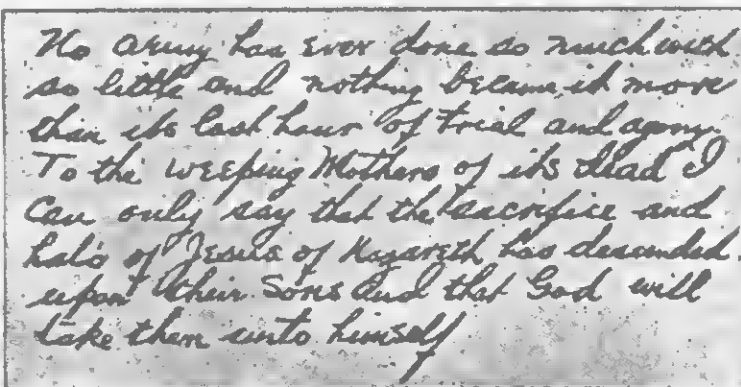 No army has ever done so much with
so little and nothing became it more
than its last hour of trial and agony.
To the weeping Mothers of its dead I
can only say that the sacrifice and
halo of Jesus of Nazareth has descended
upon their Sons and that God will
take them unto himself